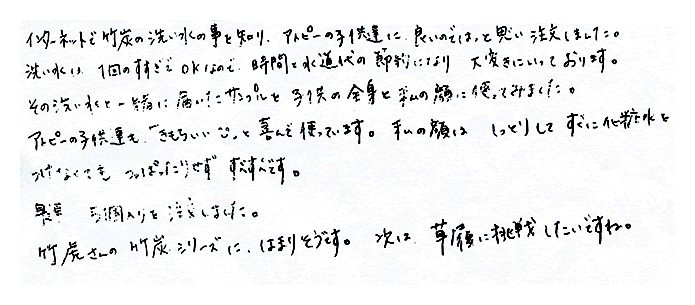 インターネットで竹炭の洗い水の事を知り、アトピーの子供達に良いのではっと思い注文しました。
洗い水は、1回のすすぎでOKなので、時間と水道代の節約になり 大変きにいっております。
その洗い水と一緒に届いたサンプルを子供の全身と私の顔に使ってみました。
アトピーの子供達も、「きもちいい」と喜んで使っています。私の顔は しっとりして すぐに化粧水を
つけなくても つっぱったりせず すべすべです。
早速 3個入りを注文しました。
竹虎さんの竹炭シリーズに、はまりそうです。 次は、草履に挑戦したいですね。